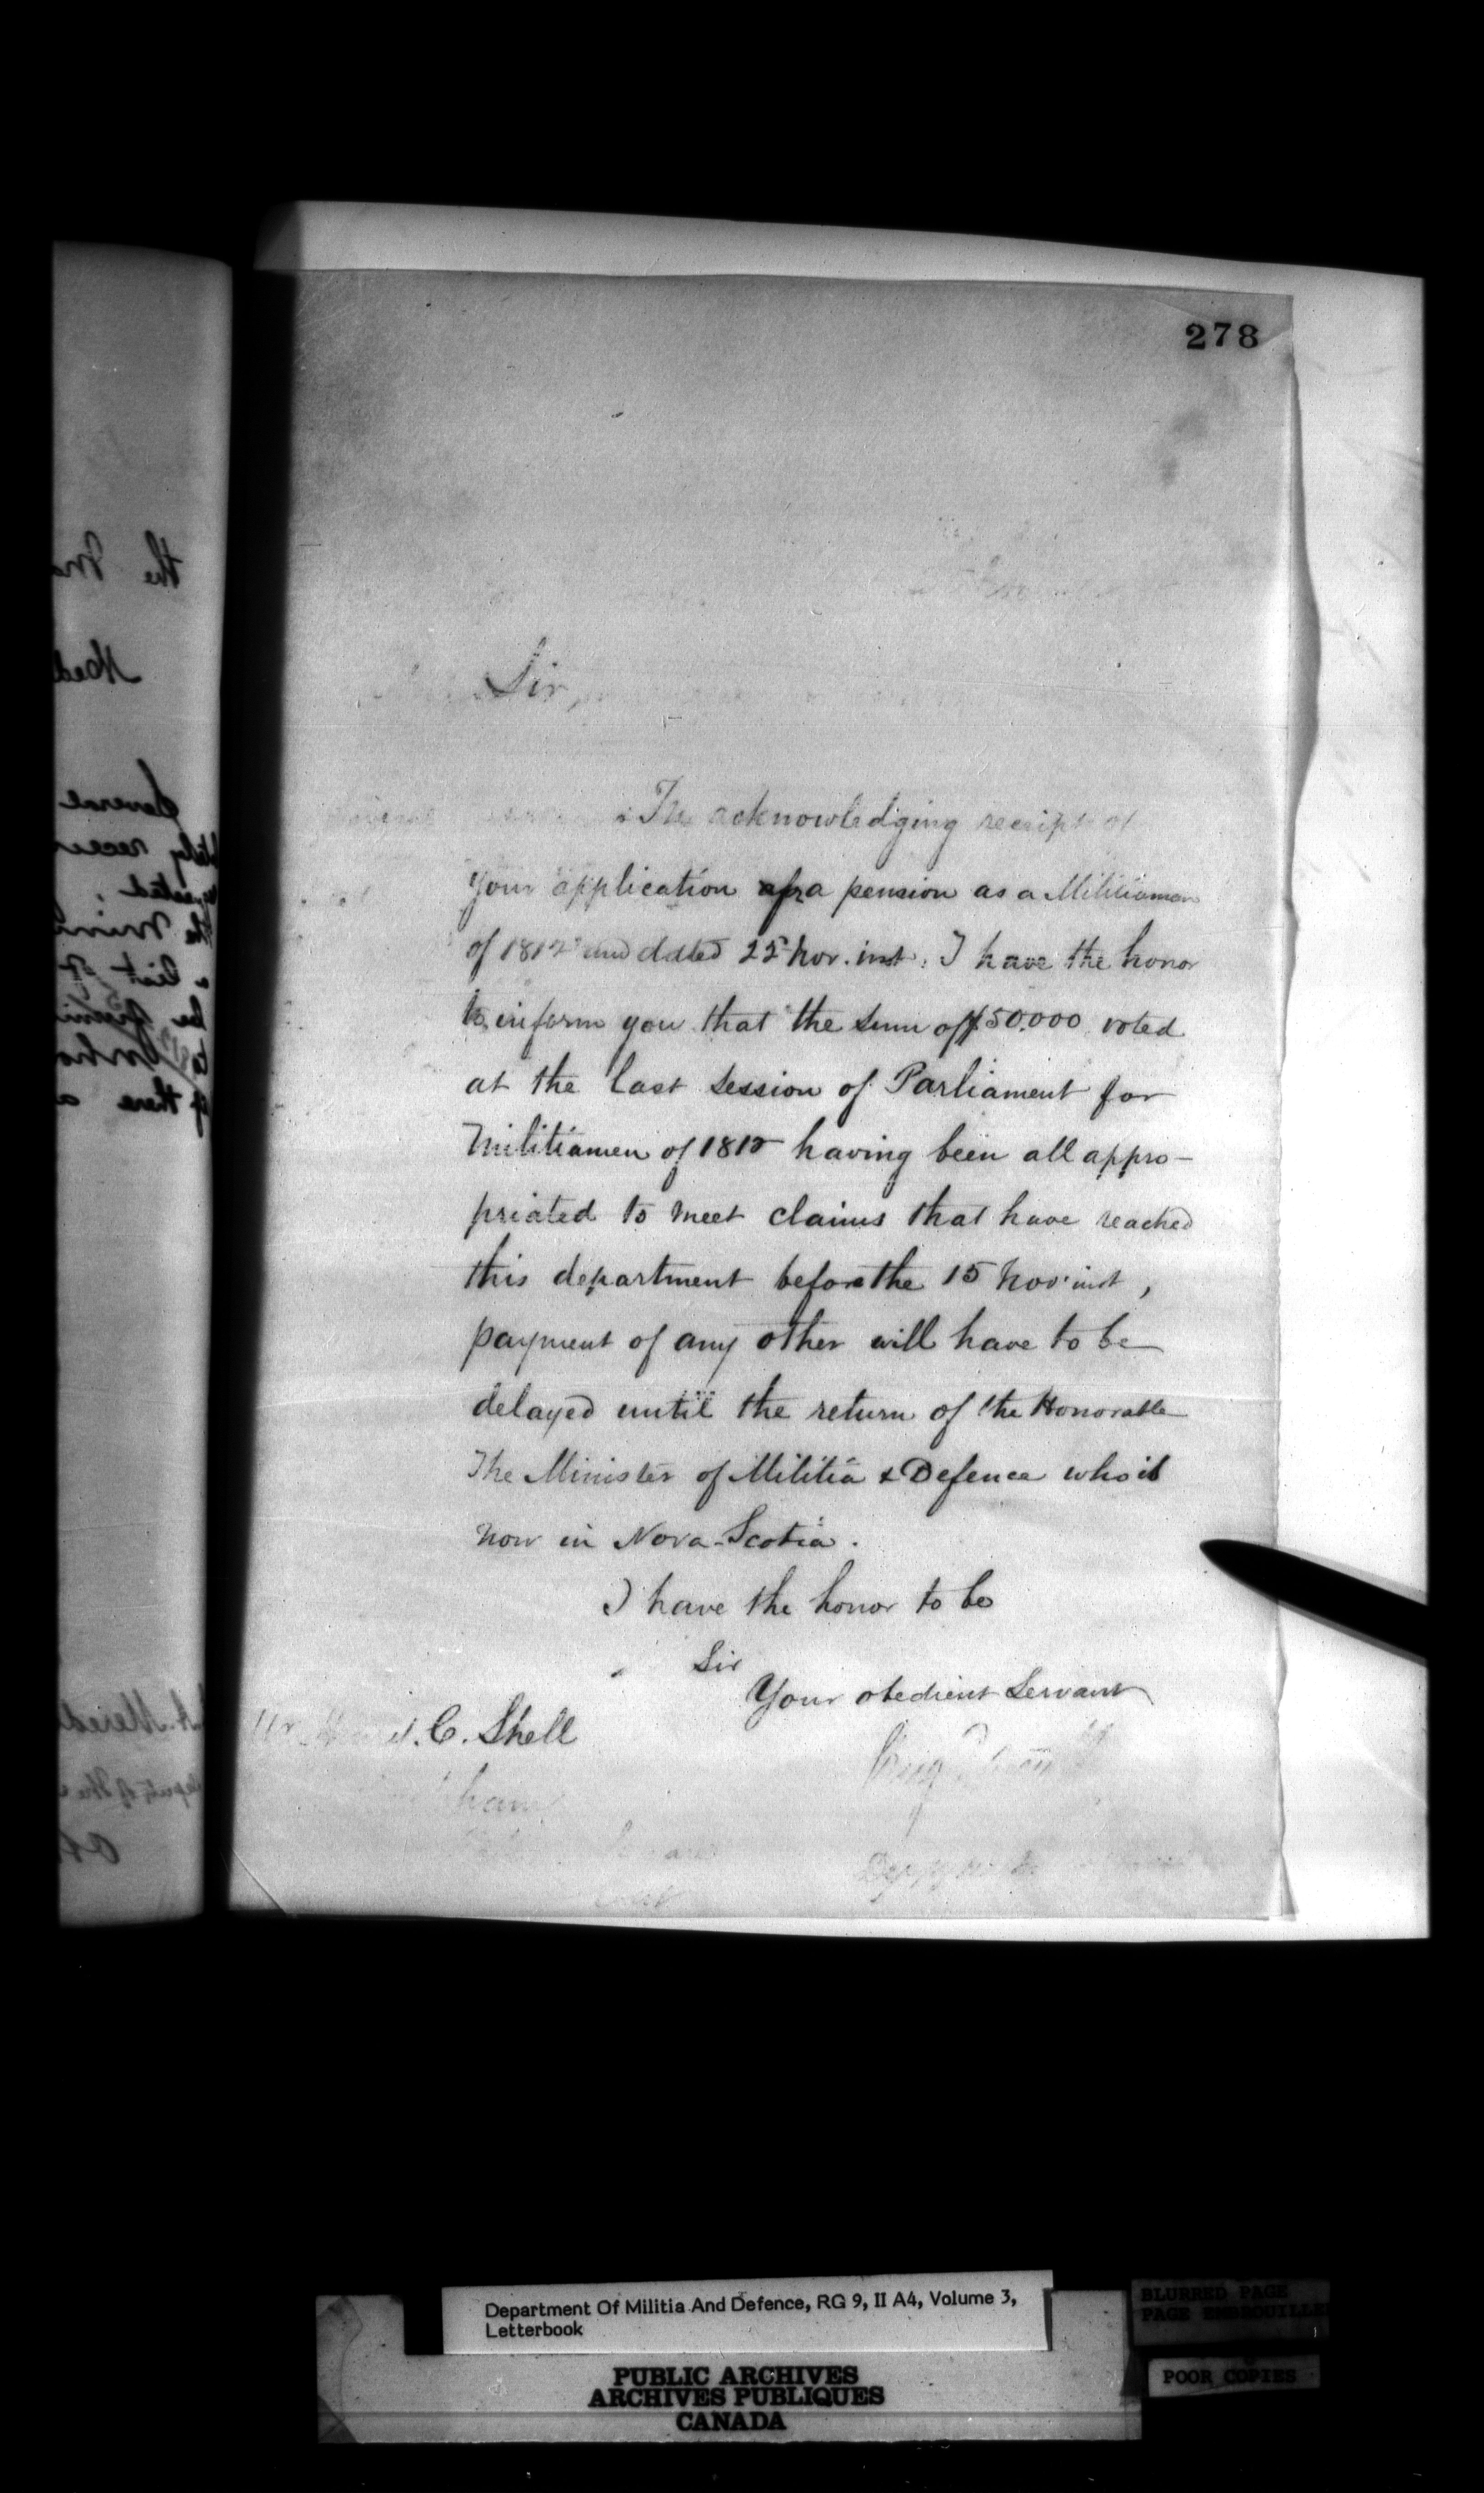 278
Sir,
In acknowledging receipt of
Your application for a pension as a Militiaman
of 1812 and dated 25 Nov. inst. I have the honor
to inform you that the sum of $50.000 voted
at the last session of Parliament for
Militiamen of 1812 having been all appro-
priated to meet claims that have reached
this department before the 15 Nov. inst,
payment of any other will have to be
delayed until the return of the Honorable
The Minister of Militia & Defence who is
now in Nova-Scotia.
I have the honor to be
Sir
Your obedient Servant
C. Shell
Department Of Militia And Defence, RG 9, II A4, Volume 3,
Letterbook
PUBLIC ARCHIVES
ARCHIVES PUBLIQUES
CANADA
BLURRED PAGE
PAGE
POOR COPIES